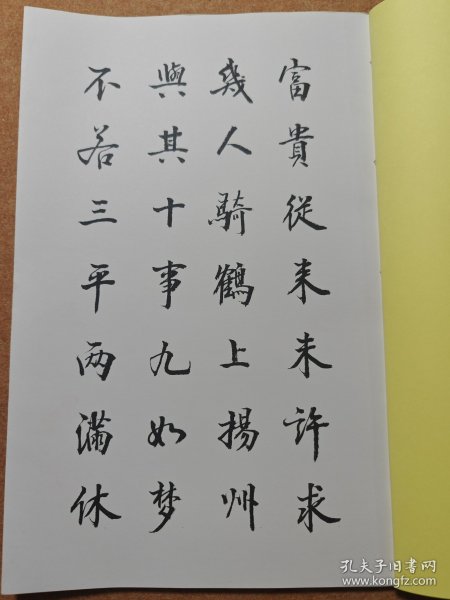 富貴從来未許求
幾人騎鶴上揚州
與其十事九如梦
不若三平两滿休
孔夫子旧书网
www.kongfz.com